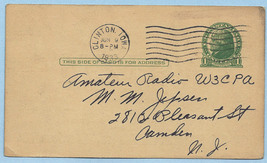 CLINTON, IOWA
8-PM
THIS SIDE OF CARD IS FOR ADDRESS
Amateur Radio W3CPA
M. M. Jepsen
2812 Pleasant St
Camden
N. J.